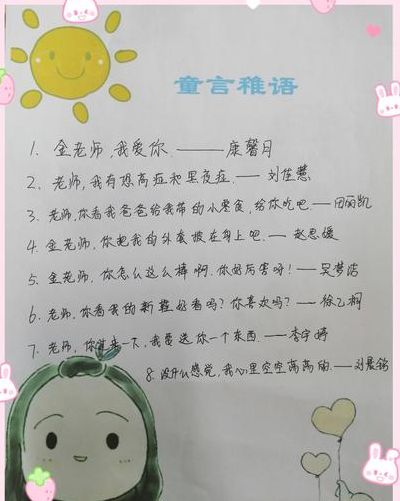 童言稚语
1. 金老师,我爱你.——康馨月
2. 老师,我有恐高症和黑夜症.——刘佳慧
3. 老师,你看我爸爸给我带的小零食,给你吃吧.——田丽凯
4. 金老师,你把我的外套披在身上吧.——赵思媛
5. 金老师,你怎么这么棒啊.你好厉害呀!——吴梦洁
6. 老师,你看我的新鞋好看吗?你喜欢吗?——徐乙桐
7. 老师,你过来一下,我要送你一个东西.——李宇婷
8. 没什么感觉,我心里空空荡荡的.——刘晨铭